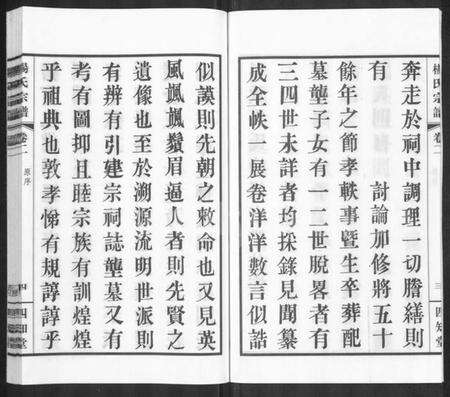 楊氏宗譜
卷二
三
四知堂
奔走於祠中調理一切謄繕則
有　　　　討論加修將五十
餘年之節孝軼事暨生卒葬配
墓塋子女有一二世脫畧者有
三四世未詳者均採錄見聞纂
成全帙一展卷洋洋數言似誥
似謨則先朝之敕命也又見英
風颯颯鬚眉逼人者則先賢之
遺像也至於溯源流明世派則
有辨有引建宗祠誌塋墓又有
考有圖抑且睦宗族有訓煌煌
乎祖典也敦孝悌有規諄諄乎
楊氏宗譜
卷二
原序
四
四知堂